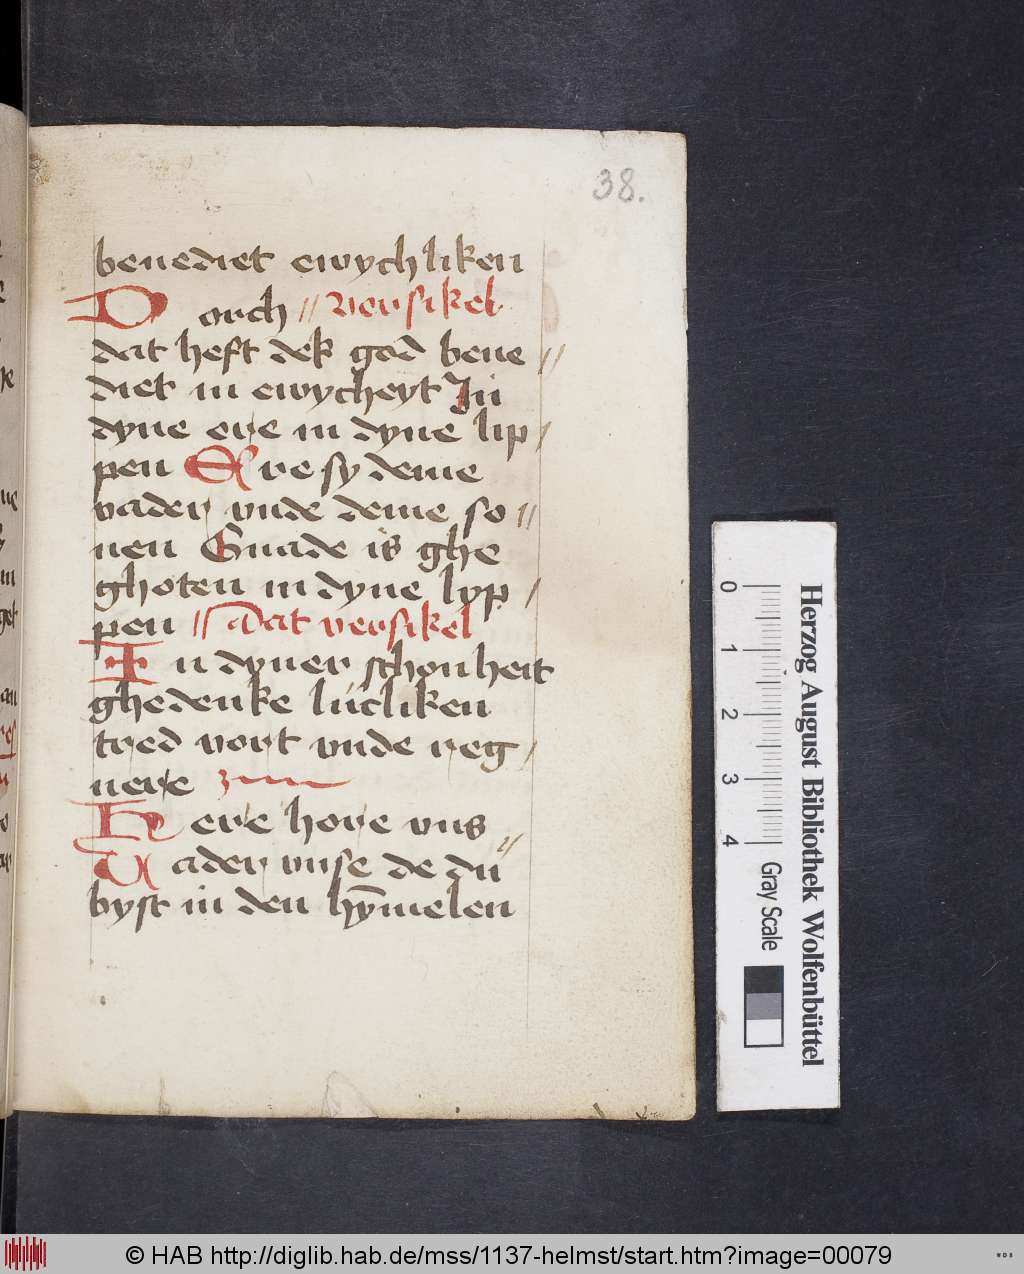 38.
benediet ewychliken
Dorch // versikel
dat heft dek god bene //
diet in ewycheyt In
dyne ere in dyne lip /
pen Ere sy deme
vader vnde deme so //
nen Gnade is ghe
ghoten in dyne lyp /
pen // dat versikel
In dyner schonheit
ghedenke lucliken
tred vort vnde reg /
nere
Here hore vns //
Vader vnse de du
byst in den hymelen
0 1 2 3 4
Gray Scale
Herzog August Bibliothek Wolfenbüttel
© HAB http://diglib.hab.de/mss/1137-helmst/start.htm?image=00079